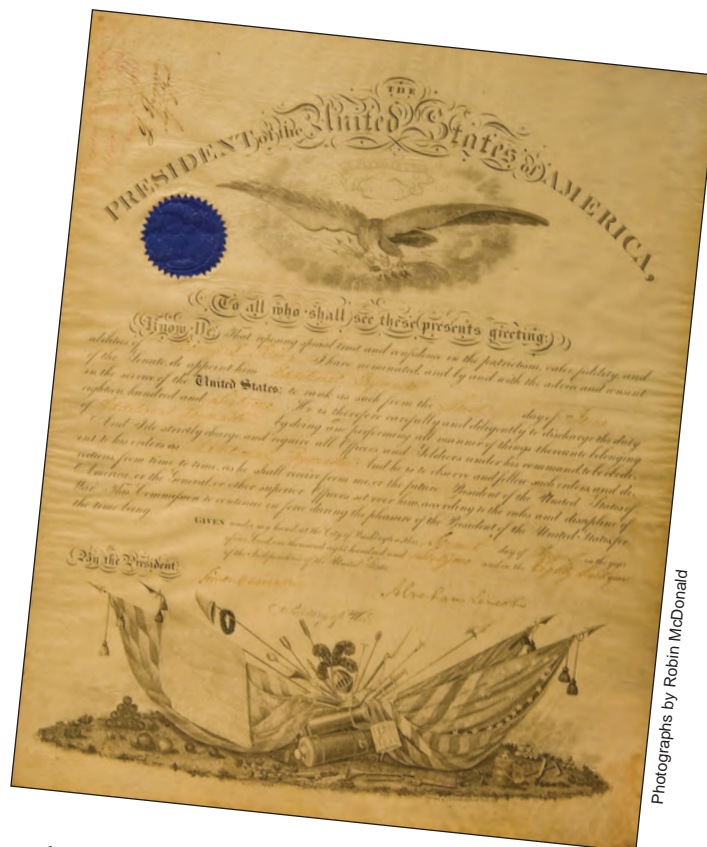 THE
PRESIDENT of the United States of AMERICA,
To all who shall see these presents greeting:
Know Ye, That reposing special trust and confidence in the patriotism, valor, fidelity, and
abilities of I have nominated, and by and with the advice and consent
of the Senate, do appoint him
in the service of the United States: to rank as such from the day of
eighteen hundred and He is therefore carefully and diligently to discharge the duty
of by doing and performing all manner of things thereunto belonging.
And I do strictly charge and require all Officers and Soldiers under his command to be obedi-
ent to his orders as And he is to observe and follow such orders and di-
rections from time to time, as he shall receive from me, or the future President of the United States of
America, or the General or other superior Officers set over him, according to the rules and discipline of
War. This Commission to continue in force during the pleasure of the President of the United States for
the time being.
GIVEN under my hand, at the City of Washington, this day of in the year
of our Lord, one thousand eight hundred and and in the
of the Independence of the United States.
By the President
Abraham Lincoln
Secretary of War
Photographs by Robin McDonald